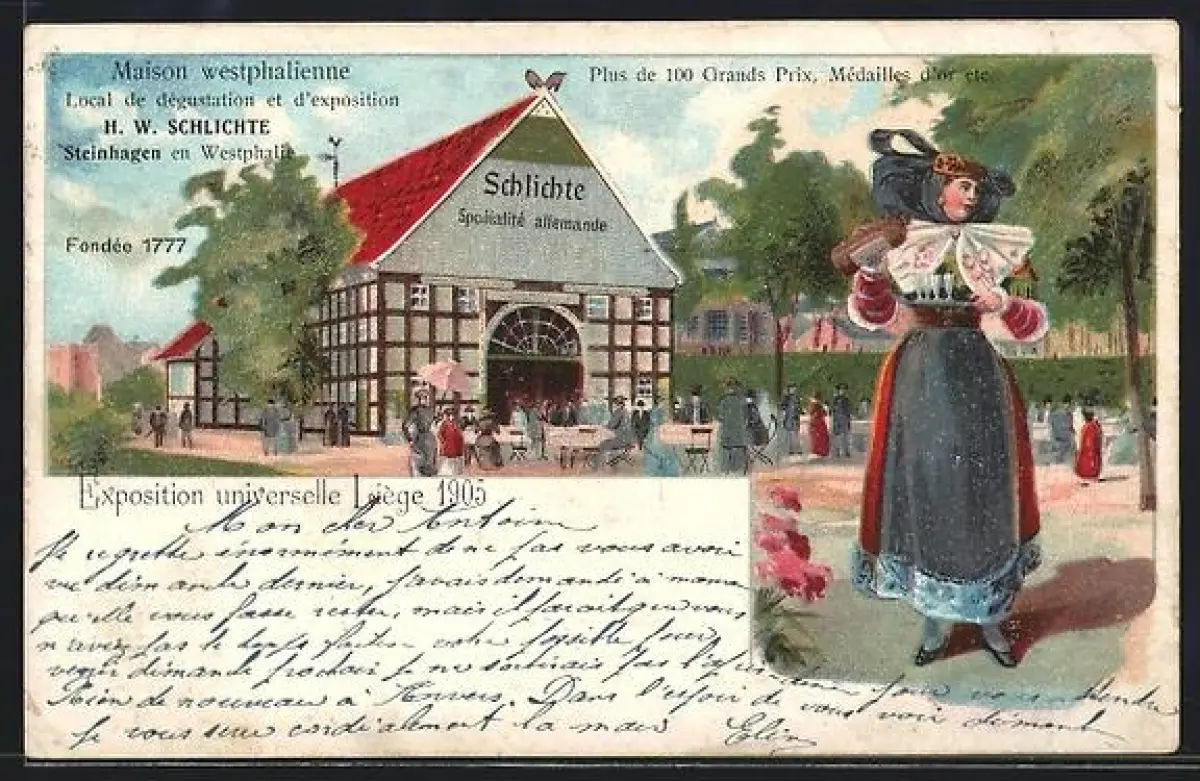 Maison westphalienne
Local de dégustation et d'exposition
H. W. SCHLICHTE
Steinhagen en Westphalie
Fondée 1777
Plus de 100 Grands Prix, Médailles d'or etc.
Schlichte
Spécialité allemande
Exposition universelle Liège 1905
Mon cher Antoine
Je regrette énormément de ne pas vous avoir
vu dimanche dernier, j'avais demandé à maman
qu'elle vous fasse rester, mais il paraît que vous
n'aviez pas le temps faites votre possible pour
venir dimanche prochain je ne sortirais pas l'après pour vous attendre
Rien de nouveau à Anvers. Dans l'espoir de vous voir
je vous serre cordialement la main